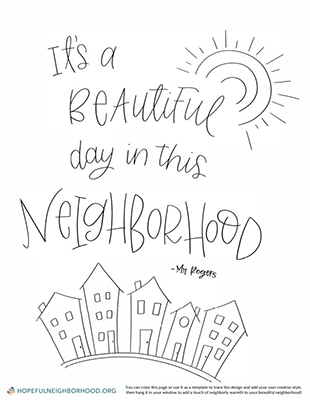 It's a
BEAUTIFUL
day in this
NEIGHBORHOOD
-Mr Rogers
HOPEFULNEIGHBORHOOD.ORG
You can color this page or use it as a template to trace the design and add your own creative style,
then hang it in your window to add a touch of neighborly warmth to your beautiful neighborhood!